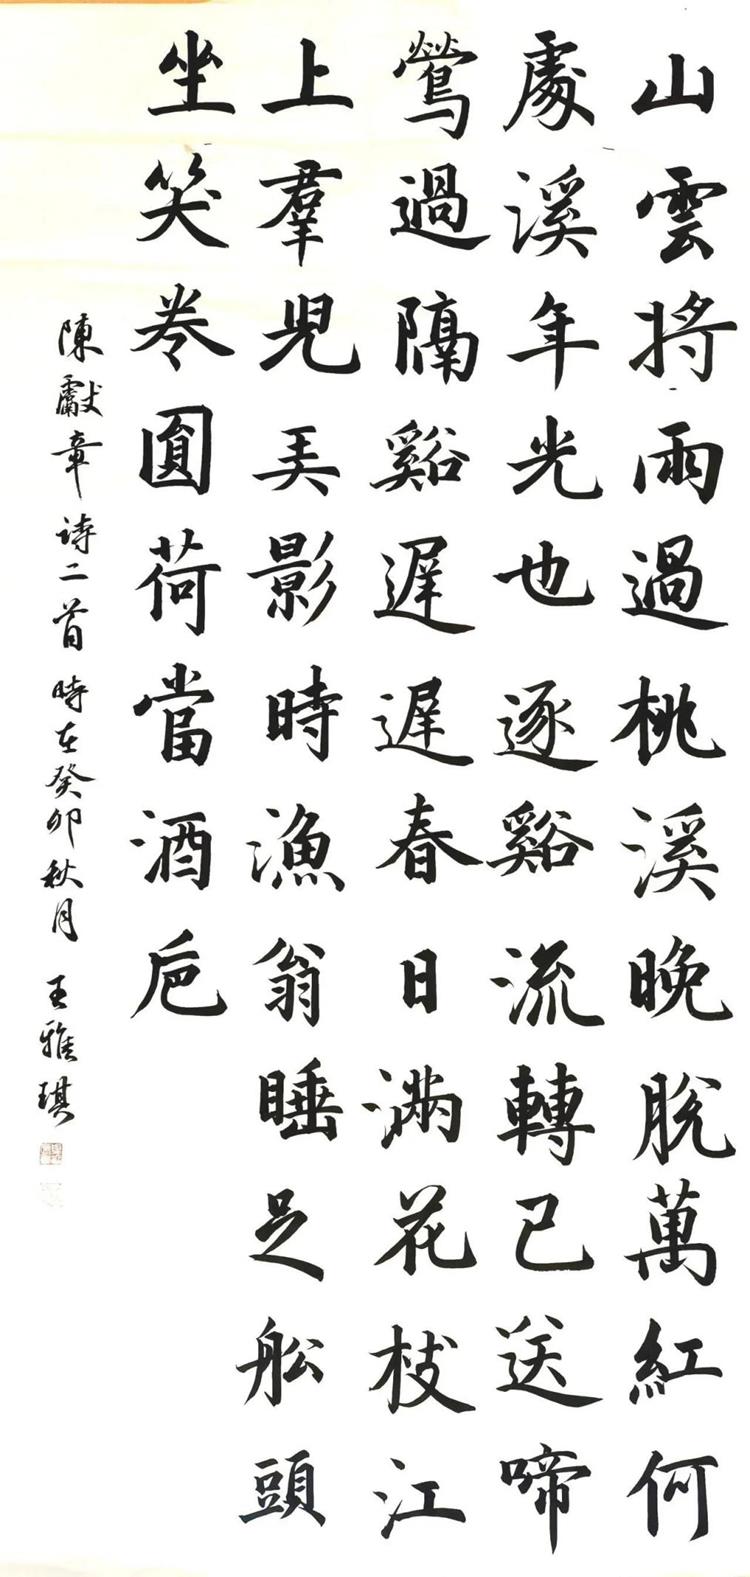 山雲将雨過桃溪晚脫萬紅何
處溪年光也逐谿流轉已送啼
鶯過隔谿遲遲春日滿花枝江
上羣兒弄影時漁翁睡足舩頭
坐笑卷圓荷當酒卮
陳獻章诗二首時在癸卯秋月王雅琪